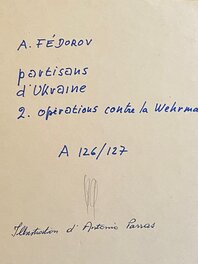 A. FÉDOROV
partisans
d'Ukraine
2. opérations contre la Wehrma
A 126/127
Illustration d'Antonio Parras